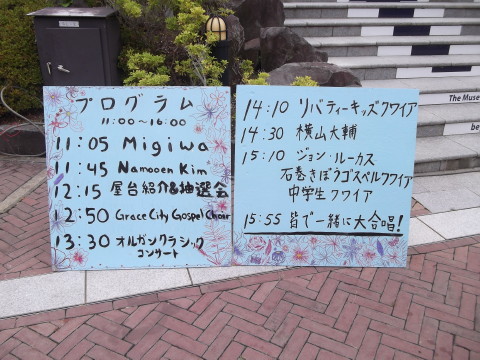 プログラム
11:00～16:00
11:05 Migiwa
11:45 Namooen Kim
12:15 屋台紹介&抽選会
12:50 Grace City Gospel Choir
13:30 オルガンクラシック
コンサート
14:10 リバティーキッズクワイア
14:30 横山大輔
15:10 ジョン・ルーカス
石巻きぼうゴスペルクワイア
中学生クワイア
15:55 皆で一緒に大合唱!
The Muse
be